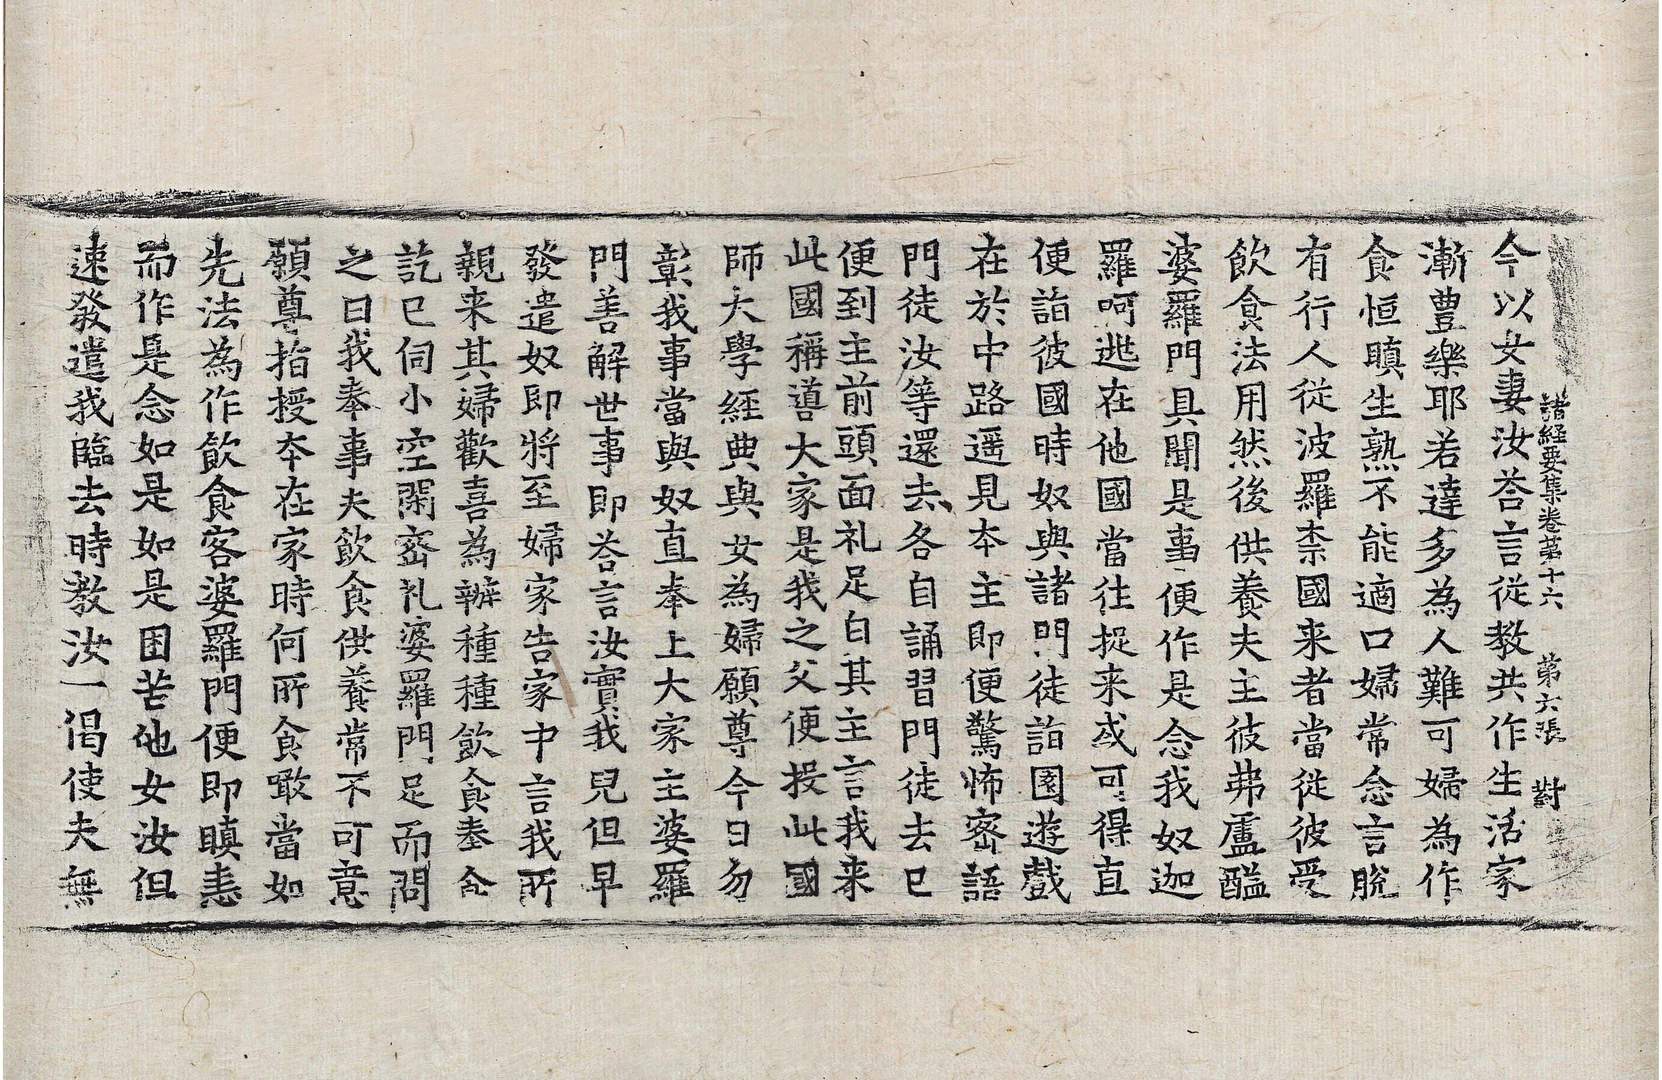 諸経要集卷苐十六　苐六張　對
今以女妻汝荅言従教共作生活家
漸豊樂耶若達多為人難可婦為作
食恒瞋生熟不能適口婦常念言脫
有行人従波羅柰國来者當従彼受
飲食法用然後供養夫主彼弗盧醯
婆羅門具聞是事便作是念我奴迦
羅呵逃在他國當往捉来或可得直
便詣彼國時奴與諸門徒詣園遊戲
在於中路遥見夲主即便驚怖密語
門徒汝等還去各自誦習門徒去已
便到主前頭面礼足白其主言我来
此國稱噵大家是我之父便投此國
師大學経典與女為婦願尊今日勿
彰我事當與奴直奉上大家主婆羅
門善解世事即荅言汝實我兒但早
發遣奴即将至婦家告家中言我所
親来其婦歡喜為辦種種飲食奉食
訖已伺小空閑密礼婆羅門足而問
之曰我奉事夫飲食供養常不可意
願尊指授夲在家時何所食噉當如
先法為作飲食客婆羅門便即瞋恚
而作是念如是如是困苦他女汝但
速發遣我臨去時教汝一偈使夫無